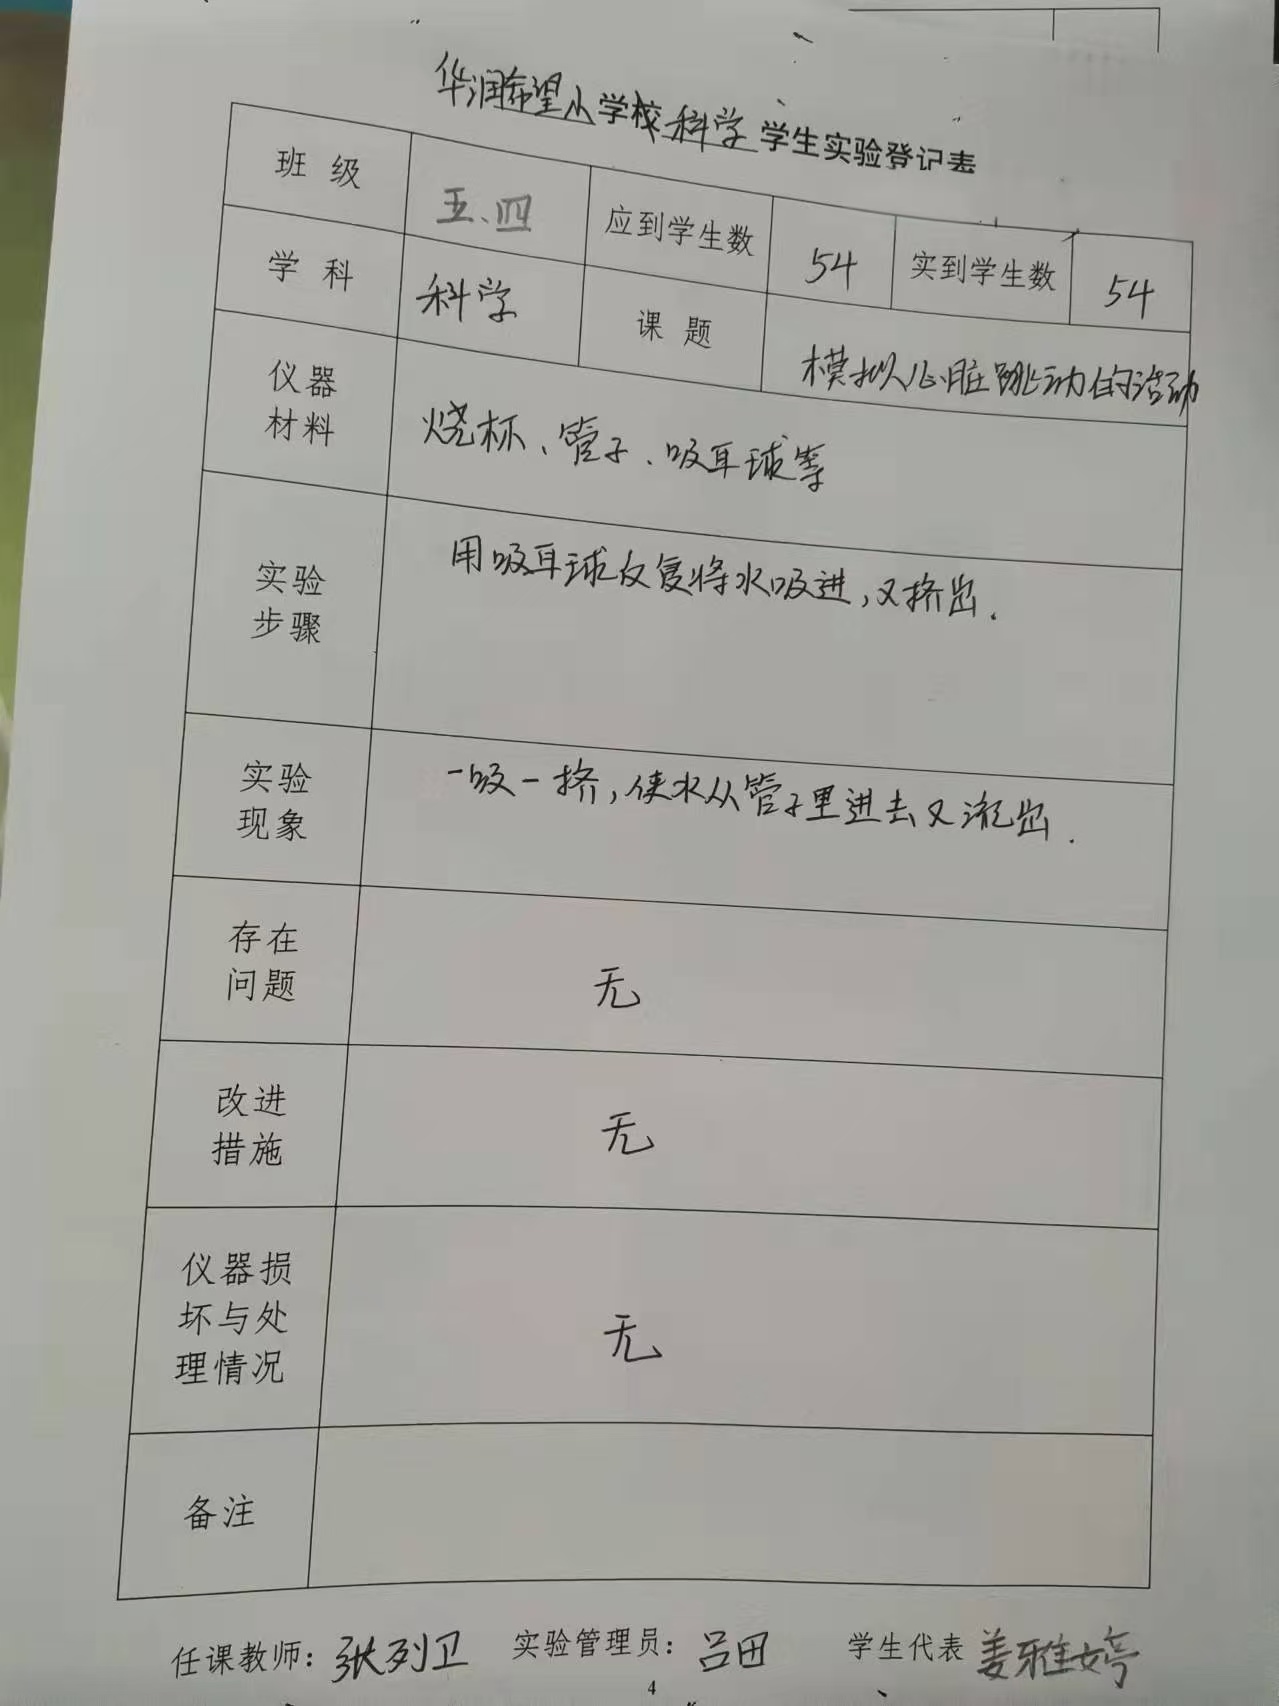 华润希望小学校科学学生实验登记表
班 级 五、四 应到学生数 54 实到学生数 54
学 科 科学 课 题 模拟心脏跳动的活动
仪器
材料
烧杯、管子、吸耳球等
实验
步骤
用吸耳球反复将水吸进,又挤出.
实验
现象
一吸一挤,使水从管子里进去又流出.
存在
问题
无
改进
措施
无
仪器损
坏与处
理情况
无
备注
任课教师: 张列卫 实验管理员: 吕田 学生代表 姜雅婷
4